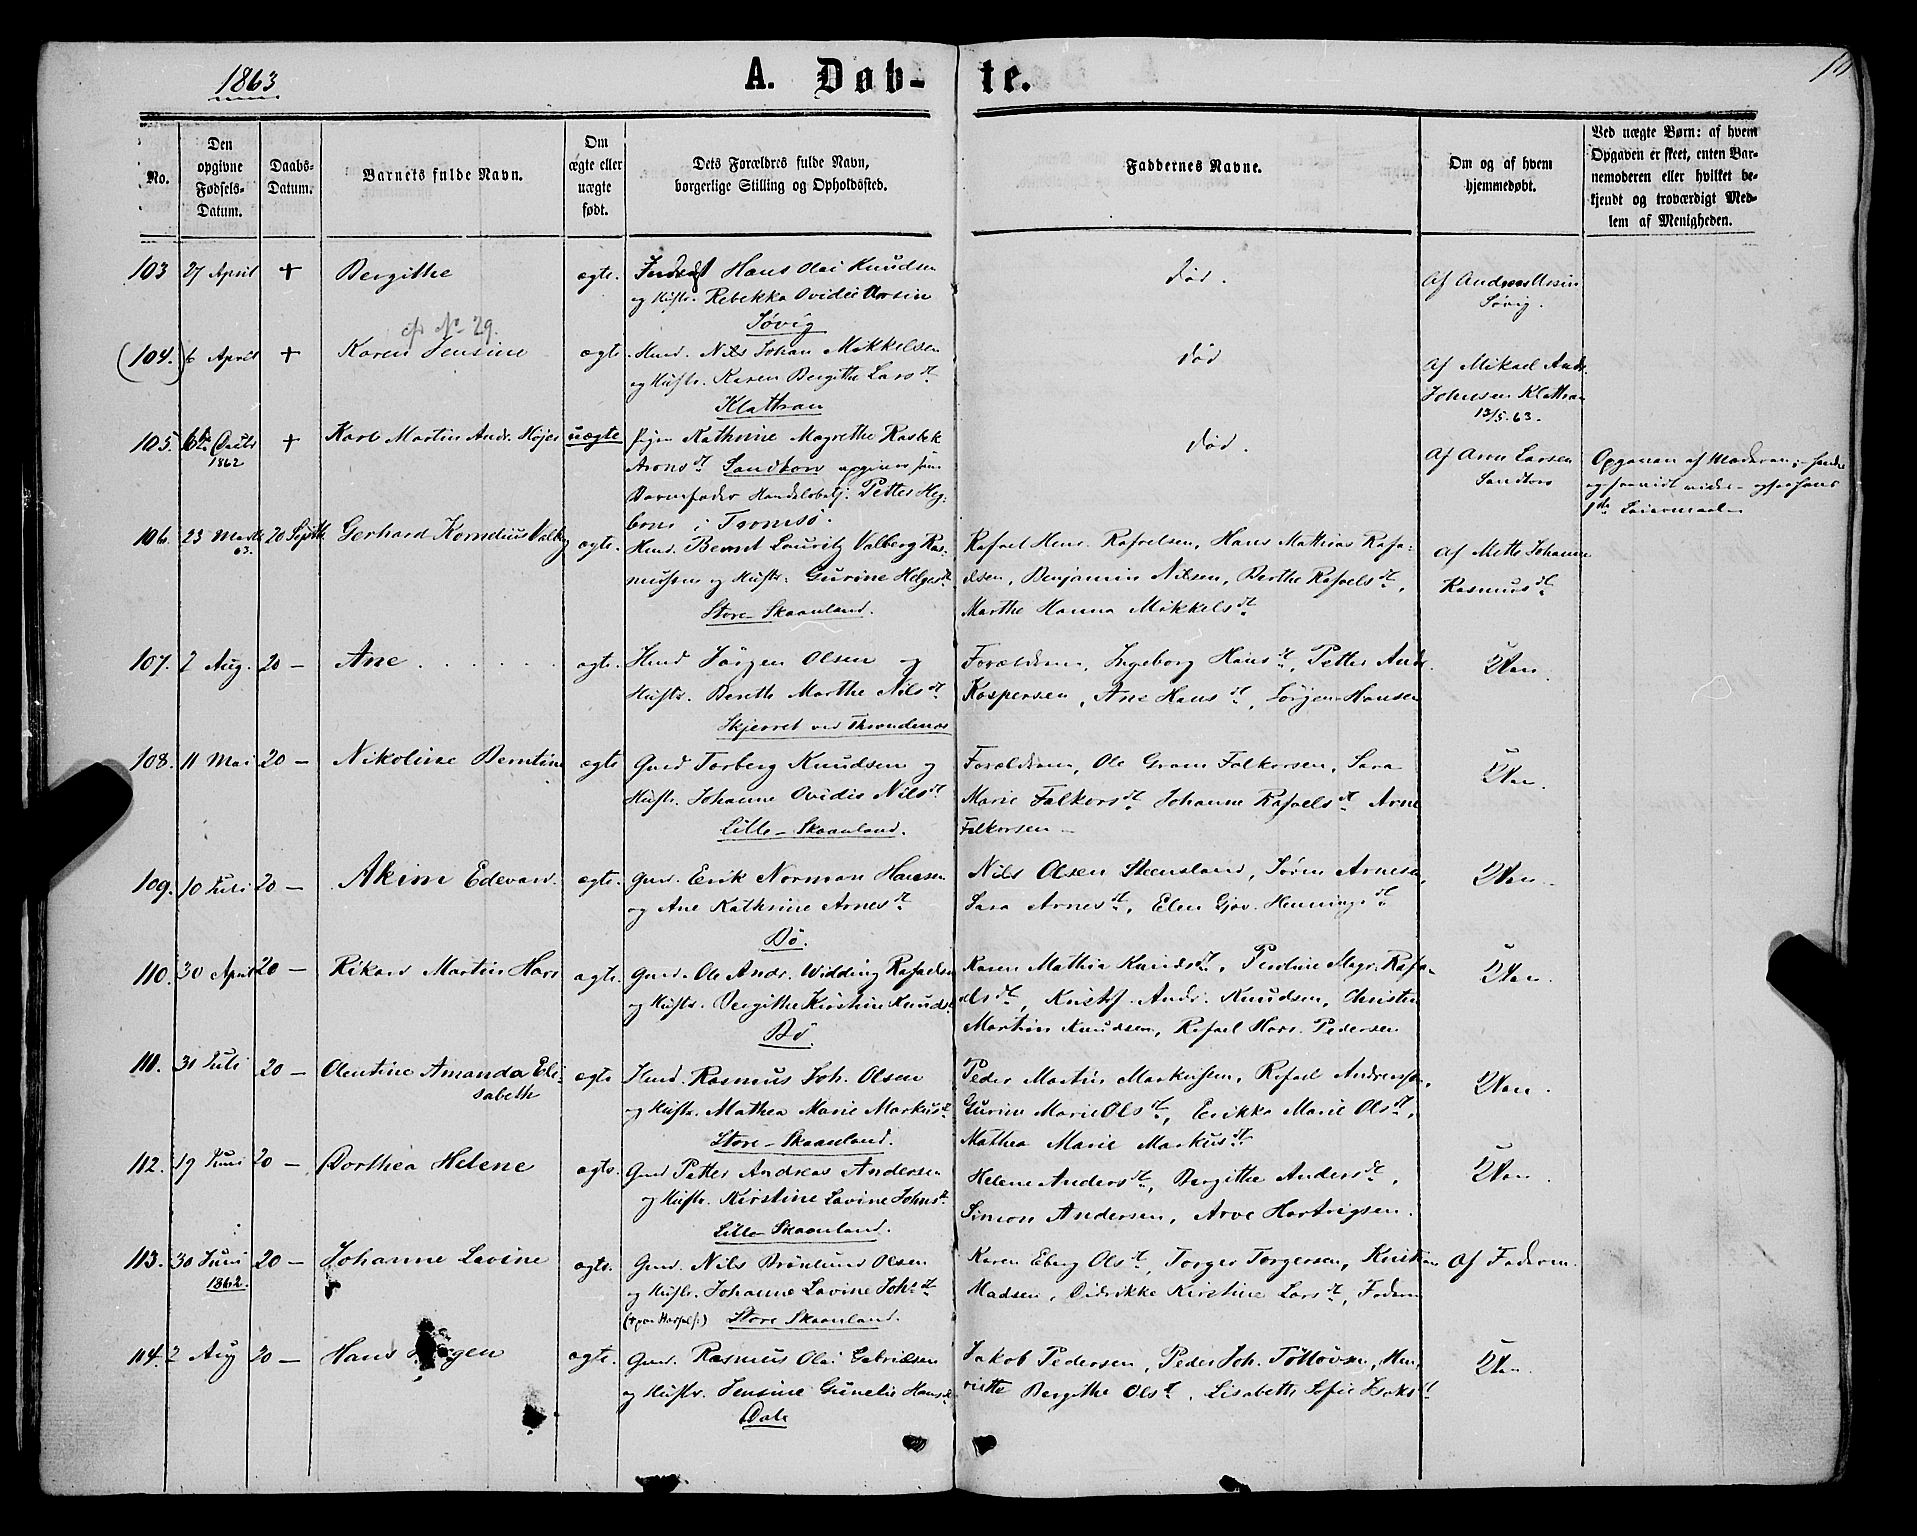 1863
A. Døb-
te.
No.
Den opgivne Fødsels-Datum.
Daabs-Datum.
Barnets fulde Navn.
Om ægte eller uægte født.
Dets Forældres fulde Navn, borgerlige Stilling og Opholdssted.
Faddernes Navne.
Om og af hvem hjemmedøbt.
Ved uægte Børn: af hvem
Opgaven er skeet, enten Bar-
nemoderen eller hvilket be-
kjendt og troværdigt Med-
lem af Menigheden.
103 27 April + Bergithe ægte. Hans Olai Knudsen
og Hustr. Rebekka Ovidie Ursin
Søvig
død.
Af Andreas Ursin
Søvig.
cfr No 29.
(104.) 6 April + Karen Jensine ægte. Huusd. Nils Johan Mikkelsen
og Hustr. Karen Bergithe Lars dt.
Klathran
død
Af Mikael Andr.
Johnsen Klathran
13/5.63.
105. 1862 + Karl Martin Andr. Højer uægte Kathrine Magrethe Rasbek
Arons dt. Sandtorv opgiver som
Barnefader Handelsbetj. Petter Hey-
i Tromsø.
død.
Af Ane Larsen
Sandtorv
Opgaven af Moderen;
Leiermaal
106. 23 Marts 63. 20 Septb. Gerhard Kornelius Valberg ægte. Huusd. Bernt Lauritz Valberg Ras-
mussen og Hustr: Gurine Helges dt.
Store-Skaanland.
Rafael Hens. Rafaelsen, Hans Mathias Rafa-
elsen, Benjamin Nilsen, Berthe Rafaels dt.,
Marthe Hanna Mikkels dt.
Af Mette Johanna
Rasmus dt.
107. 2 Aug. 20 — Ane ægte. Huusd Jørgen Olsen og
Hustr. Berethe Marthe Nils dt.
Skjerret ved Throndenæs
Forældrene, Ingeborg Hans dt., Petter Andr.
Kaspersen, Ane Hans dt., Jørgen Hansen
Nei.
108. 11 Mai 20 — Nikoline Berntine ægte Gmd Torberg Knudsen og
Hustr. Johanne Ovidie Nils dt.
Lille-Skaanland.
Forældrene, Ole Gram Falkorsen, Sara
Marie Falkors dt. Johanne Rafaels dt. Arne
Falkorsen —
Nei.
109. 10 Juli 20 — Akim Edevard ægte. Gmd. Erik Norman Hansen
og Ane Kathrine Arnes dt.
Bø.
Nils Olsen Steensland, Søren Arnesen,
Sara Arnes dt., Elen Gjør. Hennings dt.
Nei.
110. 30 April 20 — Rikard Martin Hars ægte. Gmd. Ole Andr. Widding Rafaelsen
og Hustr. Bergithe Kirstine Knuds dt.
Bø.
Karen Mathia Knuds dt., Pauline Magr. Rafa-
els dt., Kristof. Andr. Knudsen, Christen
Martin Knudsen, Rafael Hars. Pedersen
Nei.
111. 31 Juli 20 — Olentine Amanda Eli-
sabeth
ægte Huusd. Rasmus Joh. Olsen
og Hustr. Mathea Marie Markus dt.
Store-Skaanland.
Peder Martin Markussen, Rafael Andreassen,
Gurine Marie Ols dt., Erikka Marie Ols dt.,
Mathea Marie Markus dt.
Nei.
112. 19 Juni 20 — Dorthea Helene ægte. Gmd Petter Andreas Andersen
og Hustr. Kirstine Lavine Johns dt.
Lille-Skaanland.
Helene Anders dt., Bergithe Anders dt.,
Simon Andersen, Arve Hartvigsen.
Nei.
113. 30 Juni 1862. 20 — Johanne Lavine ægte. Gmd. Nils Brønlund Olsen
og Hustr. Johanne Lavine Johs dt.
Store Skaanland.
Karen Eberg Ols dt., Torger Torgersen, Kristian
Madsen, Didrikke Kirstine Lars dt., Faderen
Af Faderen.
114. 2 Aug 20 — Hans Jørgen ægte. Gmd. Rasmus Olai Gabrielsen
og Hustr. Jensine Gunelie Hans dt.
Dale
Jakob Pedersen, Peder Joh. Tollevsen, Hen-
riette Bergithe Ols dt., Lisabeth Sofie Isaks dt
Nei.